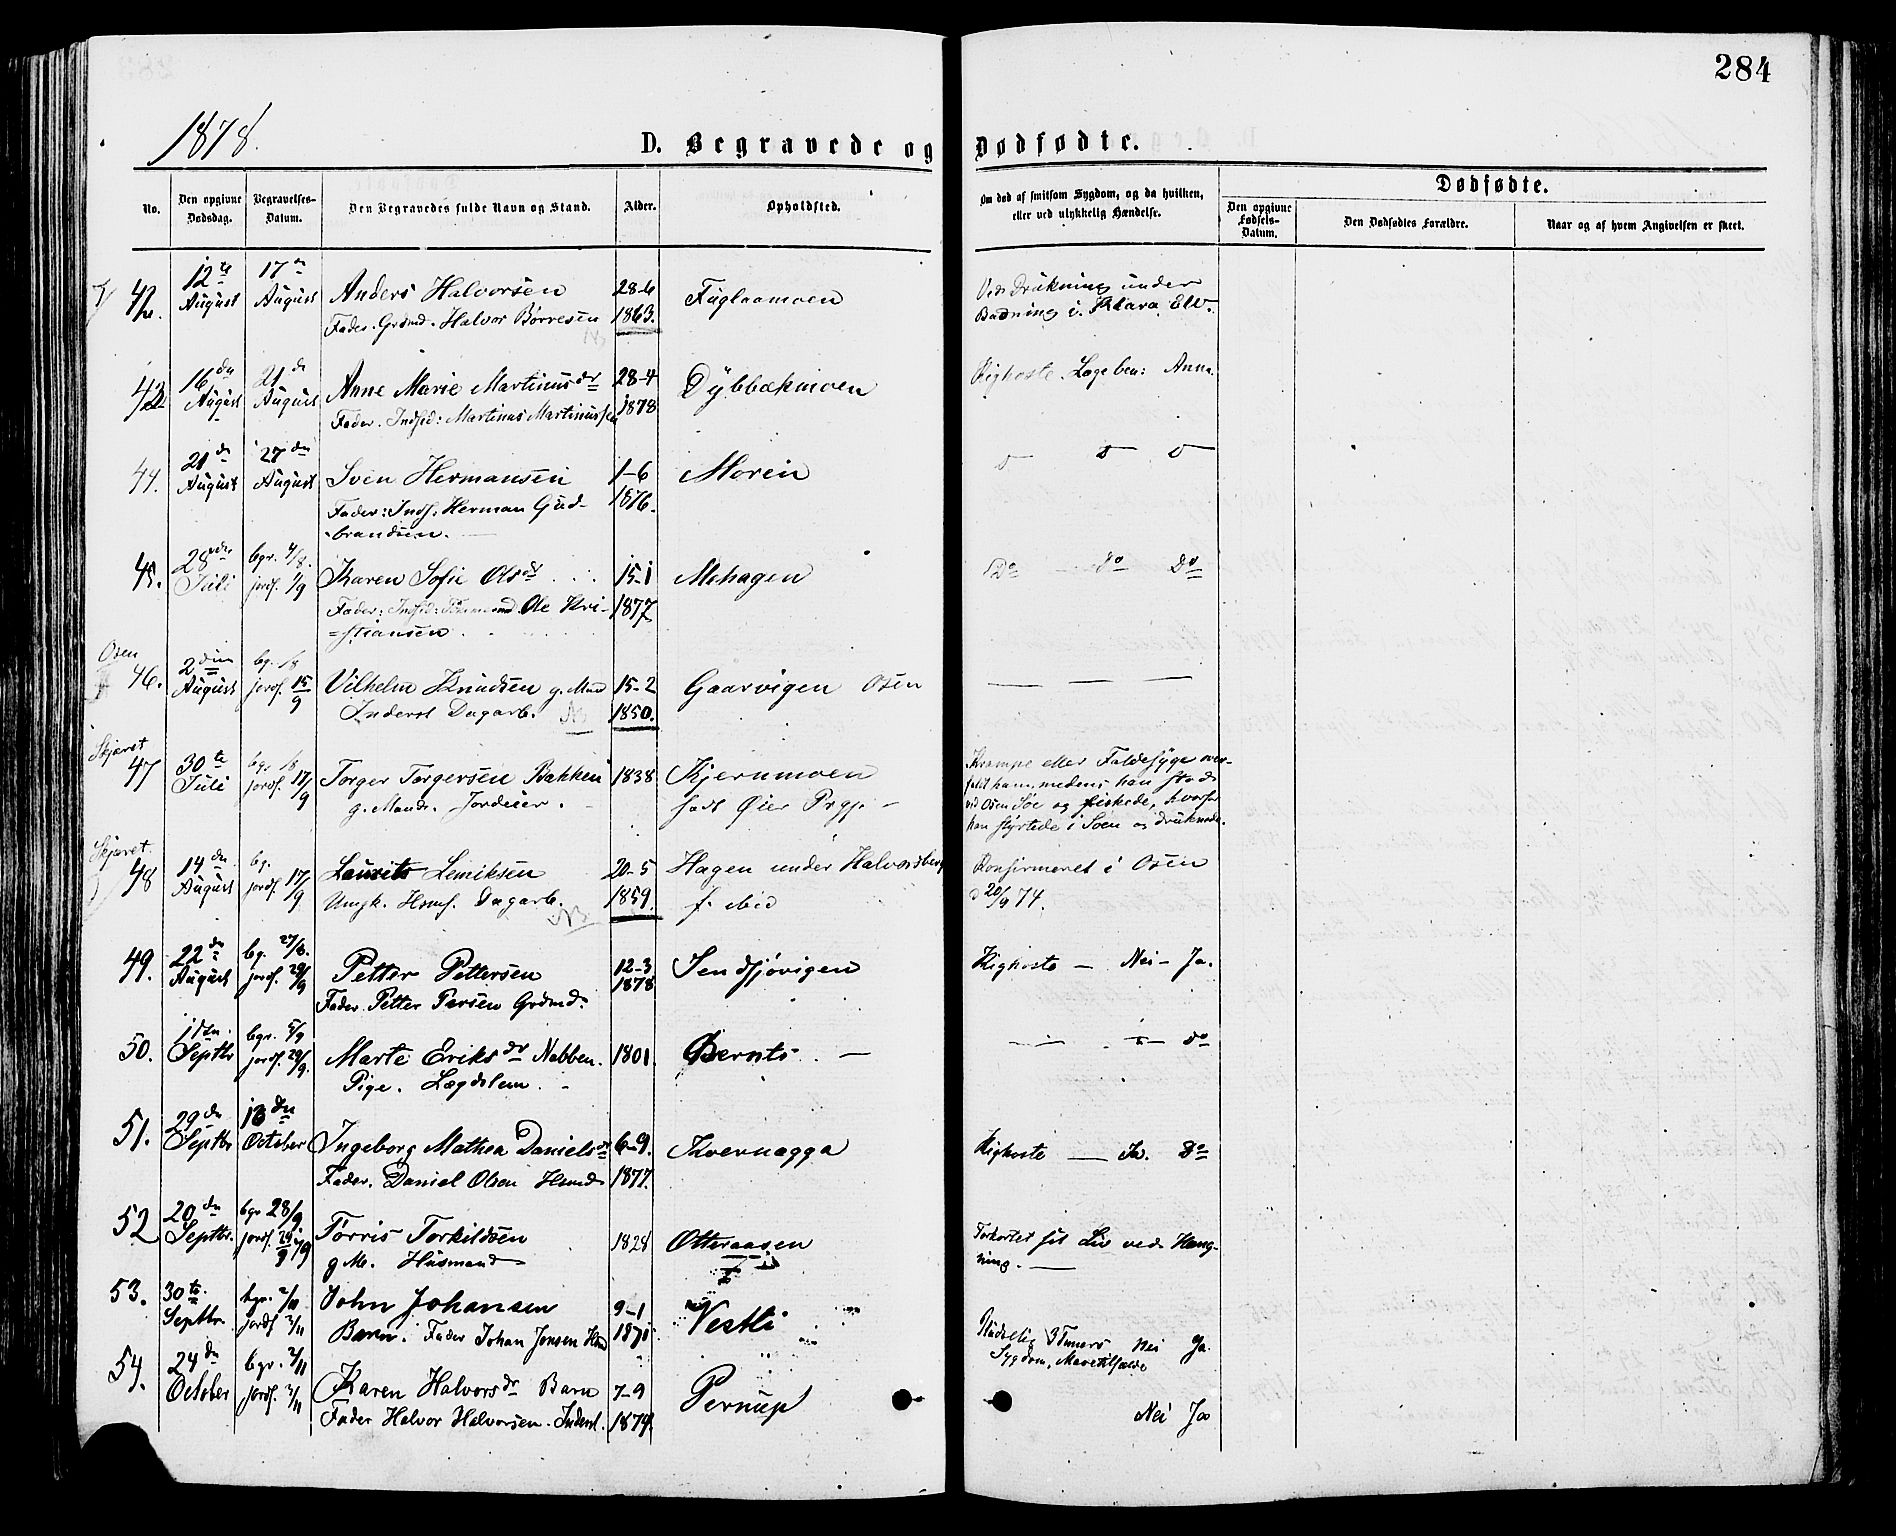 284
1878.
D. Begravede og Dødfødte.
No.
Den opgivne Dødsdag.
Begravelses-Datum.
Den Begravedes fulde Navn og Stand.
Alder.
Opholdsted.
Om død af smitsom Sygdom, og da hvilken, eller ved ulykkelig Hændelse.
Dødfødte.
Den opgivne Fødsels-Datum.
Den Dødfødtes Forældre.
Naar og af hvem Angivelsen er skeet.
42. 12te August 17de August Anders Halvorsen 28-6 Fuglaamoen Ved Drukning under
Fader. Grdmd. Halvor Børresen 1863. Badning i Klara Elv.
16de August 21de August Anne Marie Martinusdr 28-4 Dybbækmoen Kighoste.
Fader. Indsid: Martinus Martinussen 1878
44. 21de August 27de August Sven Hermansen 1-6 Moren
Fader: Inds. Herman Gud- 1876.
brandsen.
45. 28de Juli bgr. 4/8. jordf. 1/9 Karen Sofie Olsdr 15-1 Mohagen Do do Do
Fader: Indsid: Ole Kri- 1877
=stiansen
Osen
46. 2den August bg. jordf. 15/9 Vilhelm Knudsen g. Md 15-2 Gaarvigen Osen
Inderst Dagarb. 1850.
Skjæret
47 30te Juli bgr. jordf. 17/9 Torger Torgersen Bakken 1838 Kjernmoen Krampe eller Faldesyge over-
g. Mand. Jordeier. født Øier Prgj. faldt ham, medens han stod
ved Osen Søe og fiskede, hvorfor
han styrtede i Søen og druknede.
Skjæret.
48 14de August bg. jordf. 17/9 Laurits Lemiksen 20-5 Hagen under Halvordsberg Konfirmeret i Osen
Ungk. Hsmf. Dagarb. 1859. f. ibid d 20/9 74.
49. 22de August bg. 27/8. jordf. 29/9 Petter Pettersen 12-3 Sendsjøvigen Kighoste — Nei — Ja.
Fader Petter Persen Grdmd. 1878
50. 1ste Septbr bgr. 5/9 jordf. 29/9. Marte Eriksdr Nabben. 1801. Bernts — do
Pige. Lægdslem.
51. 29de Septbr 13de October Ingeborg Mathea Danielsdr 6-9. Kvernagga Kighoste — Ja. Do
Fader. Daniel Olsen Husmd 1877.
52 20de Septbr. bgr 28/9. jordf. 29/9 79 Tørris Torkildsen 1828 Otteraasen Forkortet sit Liv ved Hæng-
g. M. Husmand ning.
53. 30te Septbr bgr. jordf. 3/11 John Johansen 9-1 Vestli Pludselig
Barn. Fader Johan Jonsen Hmd Sygdom, Mavetilfælde Nei Ja.
54. 24de October bgr. 3/11 jordf. 3/11 Karen Halvorsdr Barn 7-9 Pernup Nei Ja
Fader Halvor Halvorsen. Inderst. 1874.